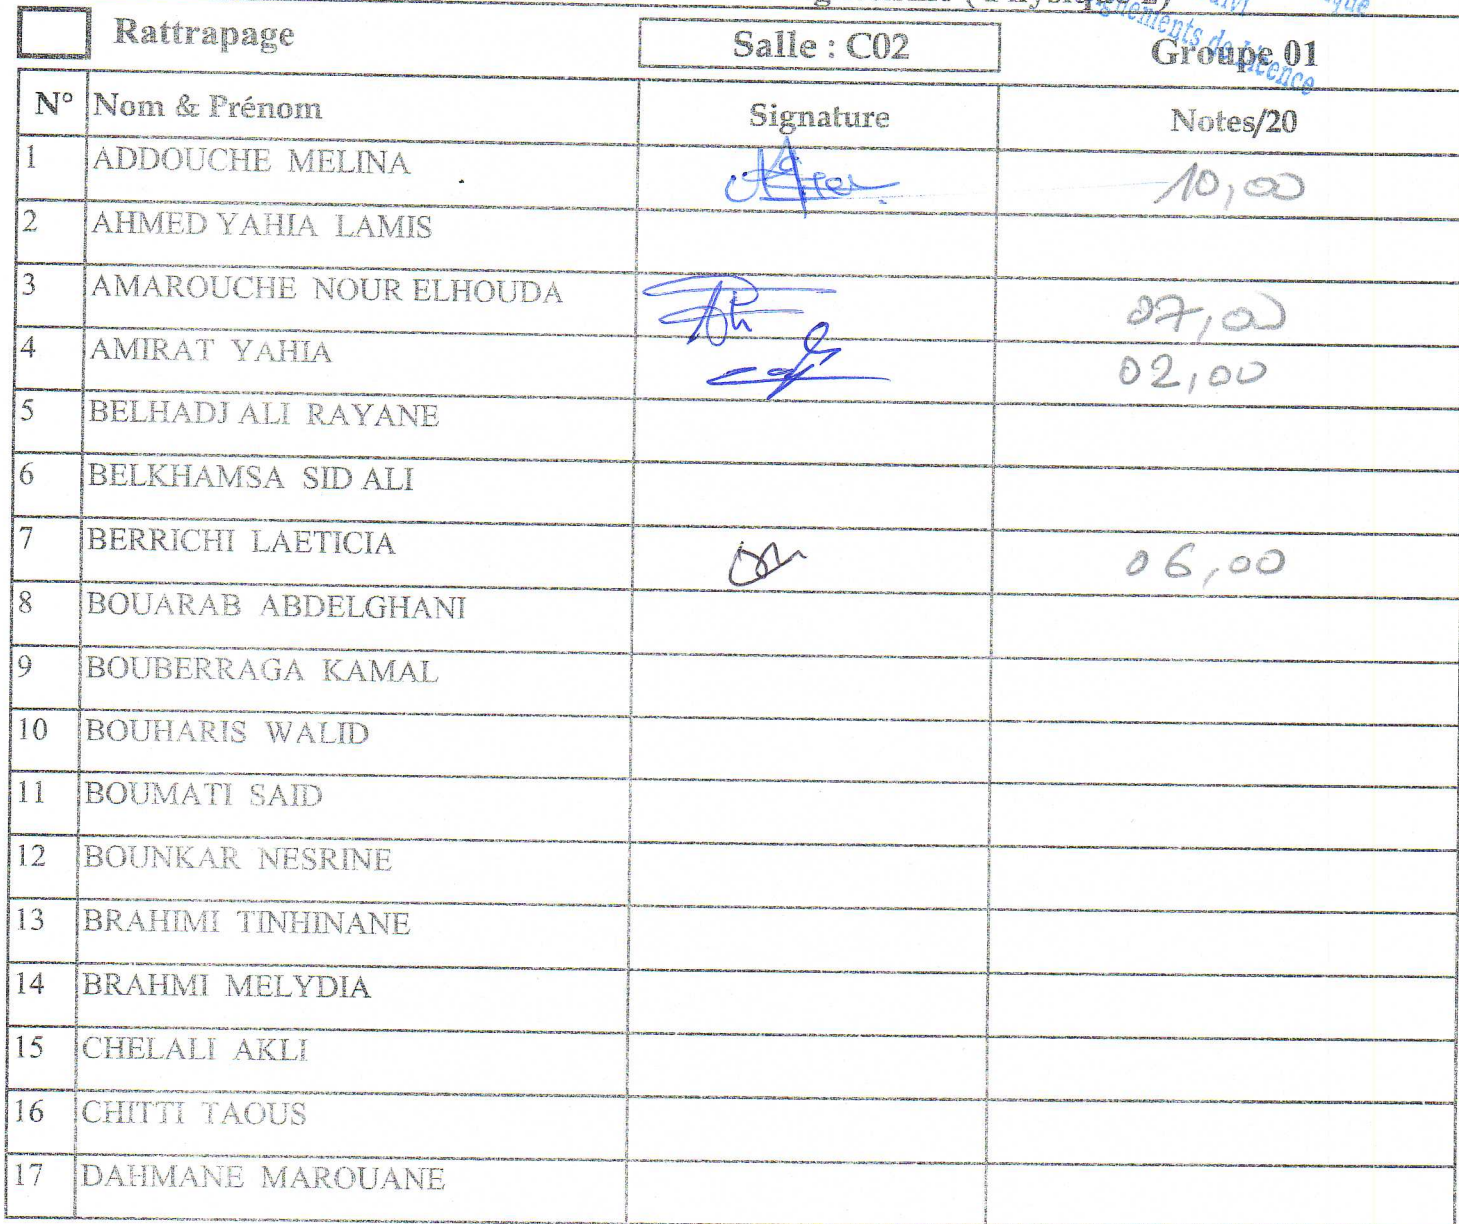 Rattrapage
Salle : C02
Groupe 01
N° Nom & Prénom Signature Notes/20
1 ADDOUCHE MELINA 10,00
2 AHMED YAHIA LAMIS
3 AMAROUCHE NOUR ELHOUDA 07,00
4 AMIRAT YAHIA 02,00
5 BELHADJ ALI RAYANE
6 BELKHAMSA SID ALI
7 BERRICHI LAETICIA 06,00
8 BOUARAB ABDELGHANI
9 BOUBERRAGA KAMAL
10 BOUHARIS WALID
11 BOUMATI SAID
12 BOUNKAR NESRINE
13 BRAHIMI TINHINANE
14 BRAHMI MELYDIA
15 CHELALI AKLI
16 CHITTI TAOUS
17 DAHMANE MAROUANE